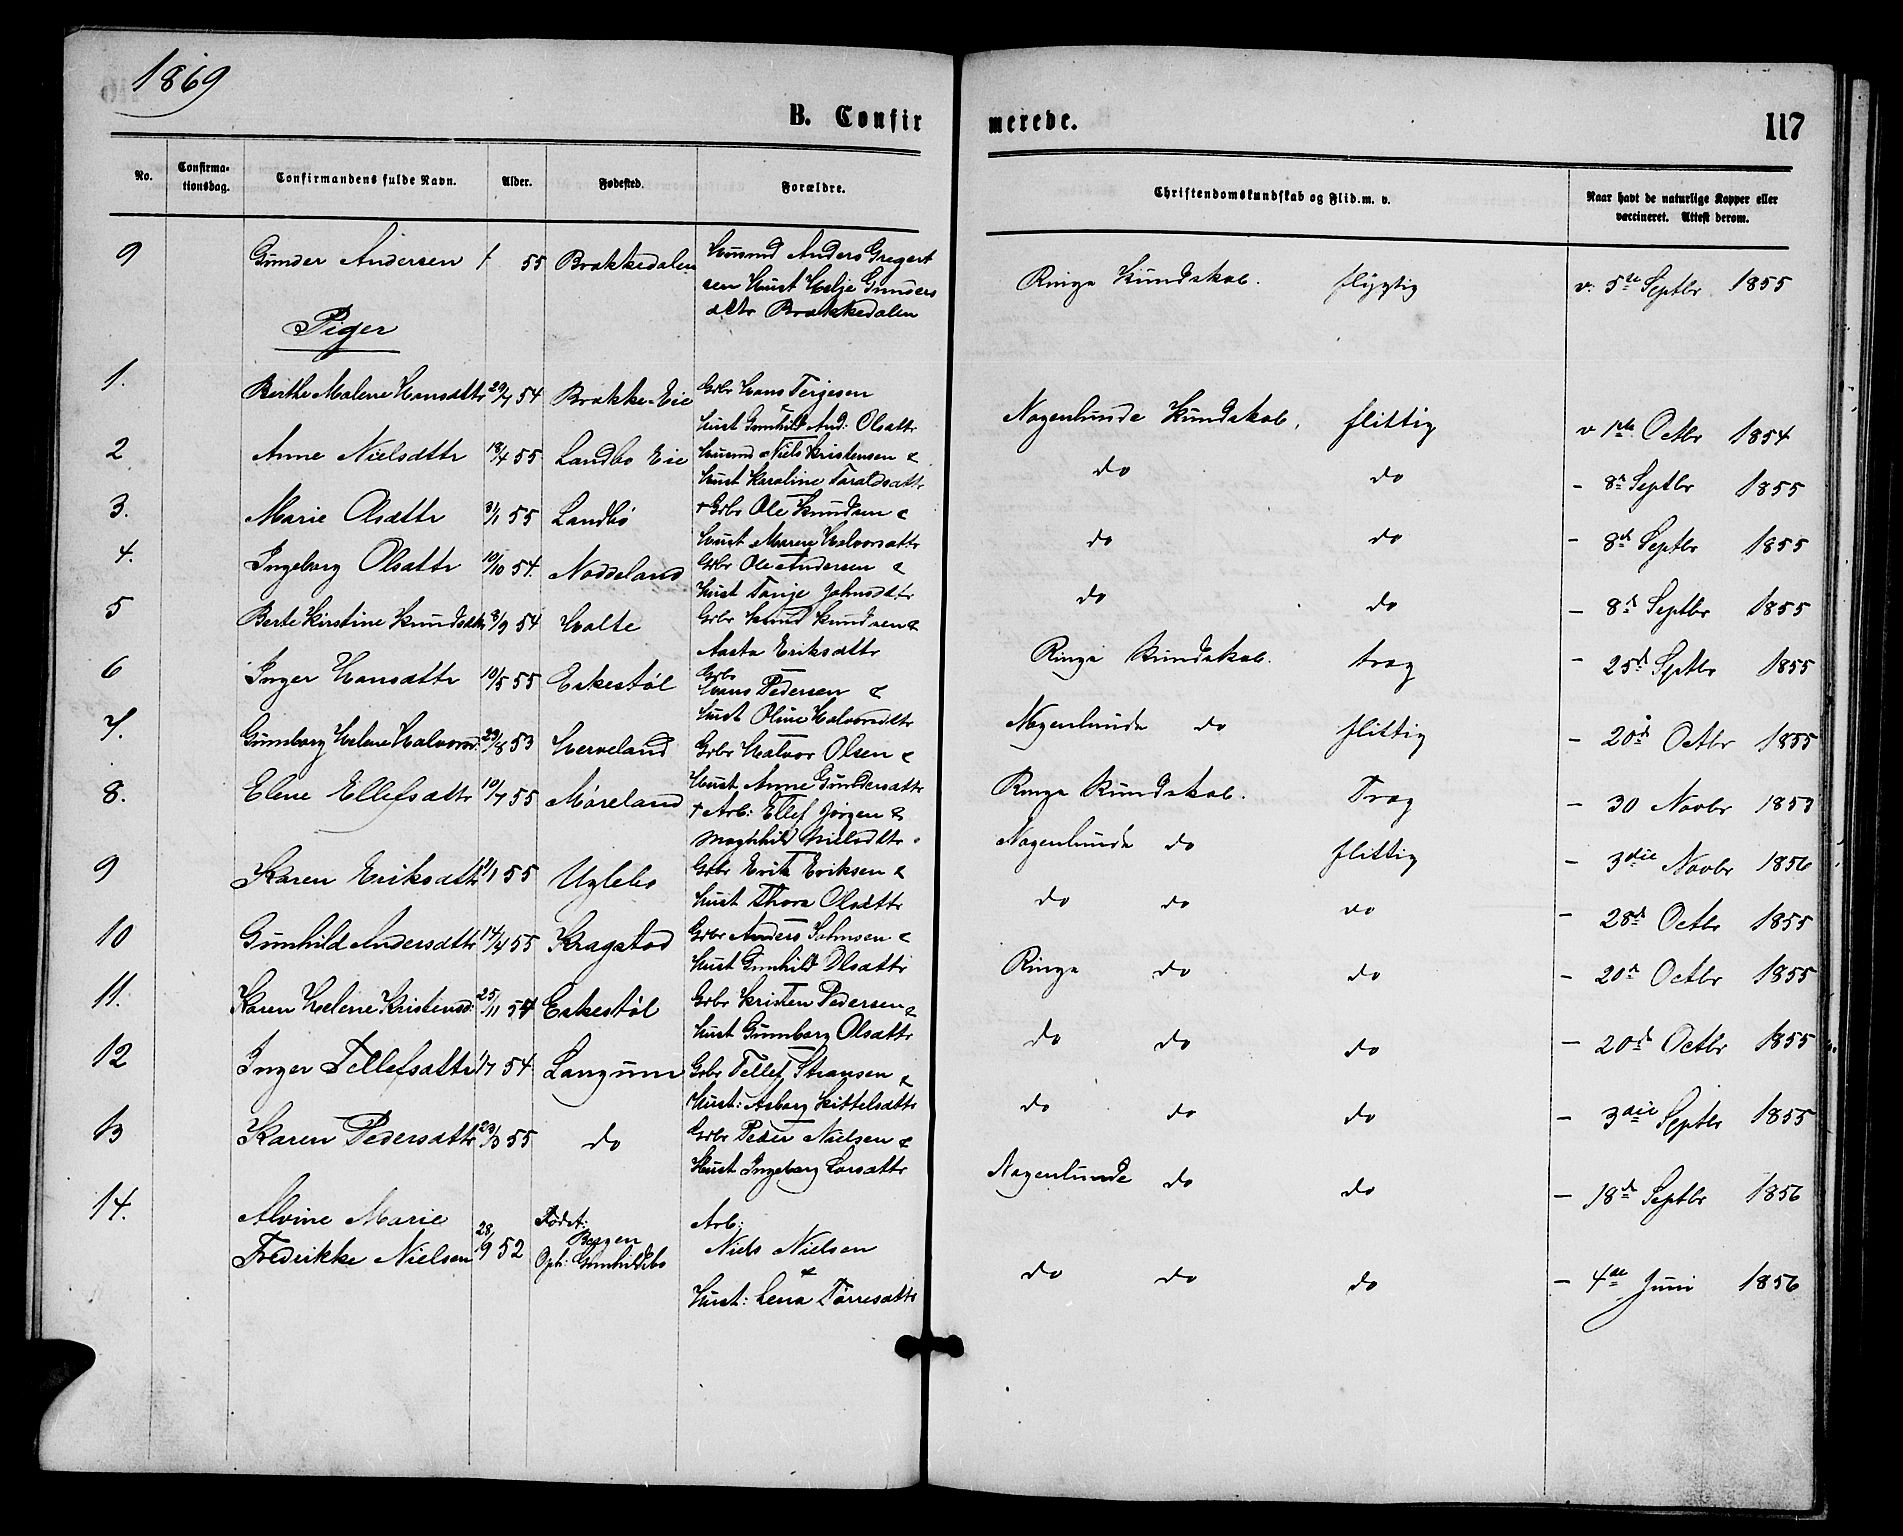 1869
B. Confirmerede. 117
No. Confirmationsdag. Confirmandens fulde Navn. Alder. Fødested. Forældre. Christendomskundskab og Flid. m. v. Naar havt de naturlige Kopper eller vaccineret. Attest derom.
9 Gunder Andersen 55 Brækkedalen Husmd Anders Gregert
sen Hust Helje Gunders
dttr Brækkedalen Ringe Kundskab. flygtig v. 5te Septbr 1855
Piger
1. Berthe Malene Hansdttr 29/7 54 Brække-Eie Grbr Hans Terjesen &
Hust Gunhild And: Olsdttr Nogenlunde Kundskab, flittig v 1ste Octbr 1854
2 Anne Nielsdttr 18/4 55 Landbø Eie Husmd Niels Kristensen &
Hust Karoline Taraldsdttr do do - 8de Septbr 1855
3. Marie Olsdttr 3/1 55 Landbø + Grbr Ole Knudsen &
Hust Maren Halvorsdttr do do - 8de Septbr 1855
4. Ingeborg Olsdttr 10/10 54. Noddeland Grbr Ole Andersen &
Hust Tarje Johnsdttr do do - 8de Septbr 1855
5 Berte Kirstine Knudsdttr 8/9 54 Holte Grbr Knud Knudsen &
Aasta Eriksdttr Ringe Kundskab. træg - 25de Septbr 1855
6 Inger Hansdttr 10/5 55 Eskestøl Grbr
Hans Pedersen &
Hust Oline Halvorsdttr Nogenlunde do flittig - 20de Octbr 1855
7. Gunborg Helene Halvorsd. 29/8 53 Herveland Grbr Halvor Olsen &
Hust Anne Gundersdttr Ringe Kundskab. Træg - 30 Novbr 1853
8. Elene Ellefsdttr 10/7 55 Møreland + Arb: Ellef Jørgen &
Maghild Nielsdttr Nogenlunde do flittig - 3die Novbr 1856
9 Karen Eriksdttr 11/1 55 Uglebo Grbr Erik Eriksen &
Hust Thora Olsdttr do do do - 28de Octbr 1855
10 Gunhild Andersdttr 14/4 55 Kragstad Grbr Anders Salmsen &
Hust Gunhild Olsdttr Ringe do do - 20de Octbr 1855
11. Karen Helene Kristensd: 25/11 54 Eskestøl Grbr Kristen Pedersen &
Hust Gunborg Olsdttr do do do - 20de Octbr 1855
12 Inger Tellefsdttr 1/7 54 Langum Grbr Tellef &
Hust: Asborg Kittelsdttr do do do - 3die Septbr 1855
13 Karen Pedersdttr 23/3 55 do Grbr Peder Nielsen &
Hust Ingeborg Larsdttr Nogenlunde do do - 18de Septbr 1856
14. Alvine Marie
Fredrikke Nielsen 28/9 52 Født:
Bergen
Opt: Gunhildsbo Arb:
Niels Nielsen
&
Hust: Lena Tørresdttr do do do - 4de Juni 1856